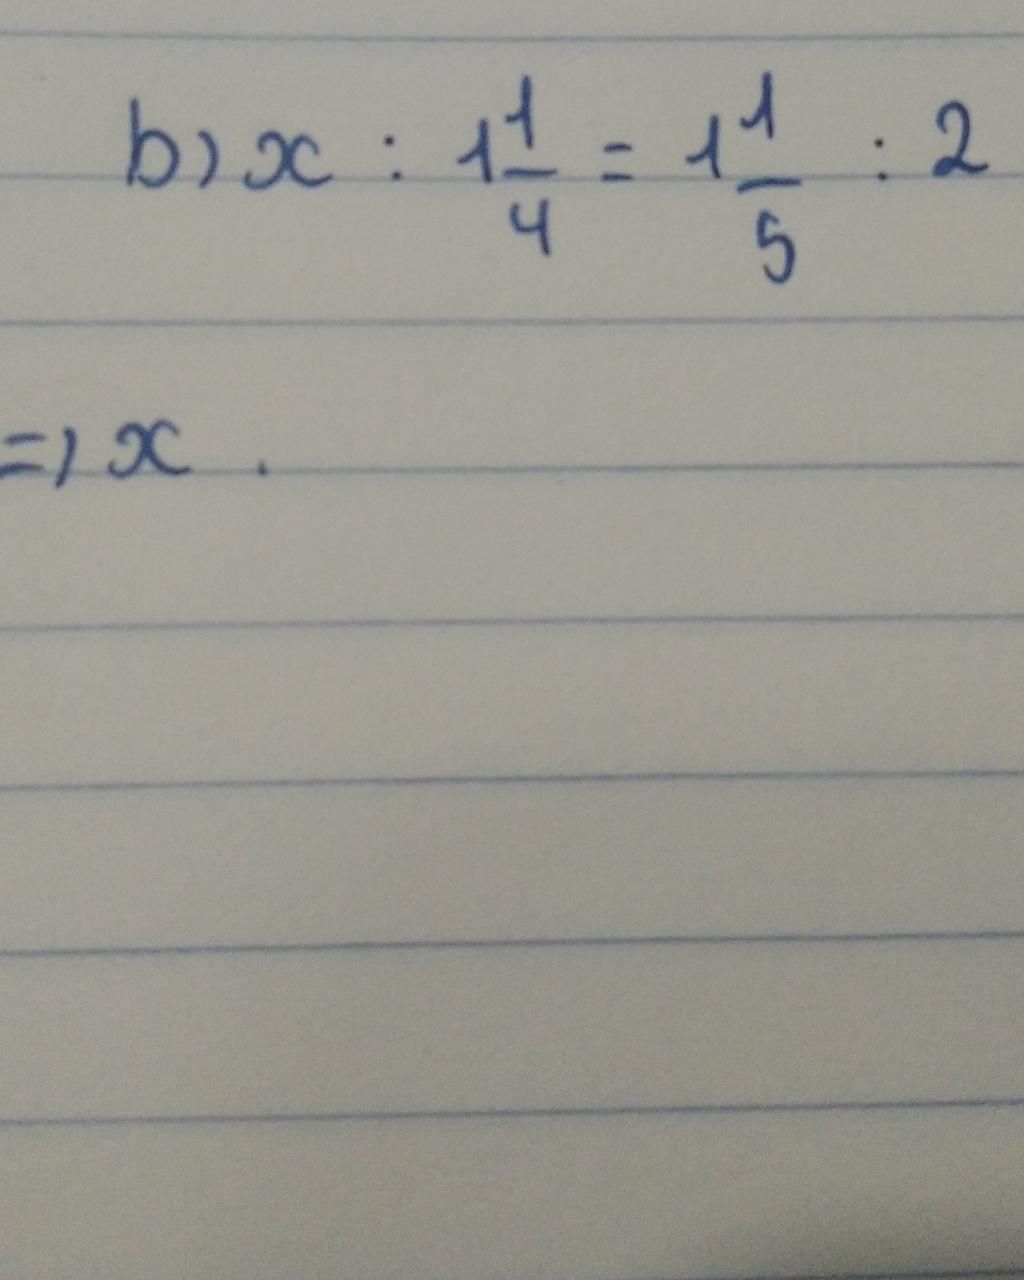 b) x : 1 1/4 = 1 1/5 : 2
=) x .